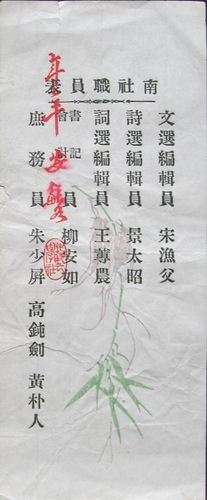 南社職員表
文選編輯員 宋漁父
詩選編輯員 景太昭
詞選編輯員 王蓴農
書記
會計員 柳安如
庶務員 朱少屏
高鈍劍 黃朴人
年年安